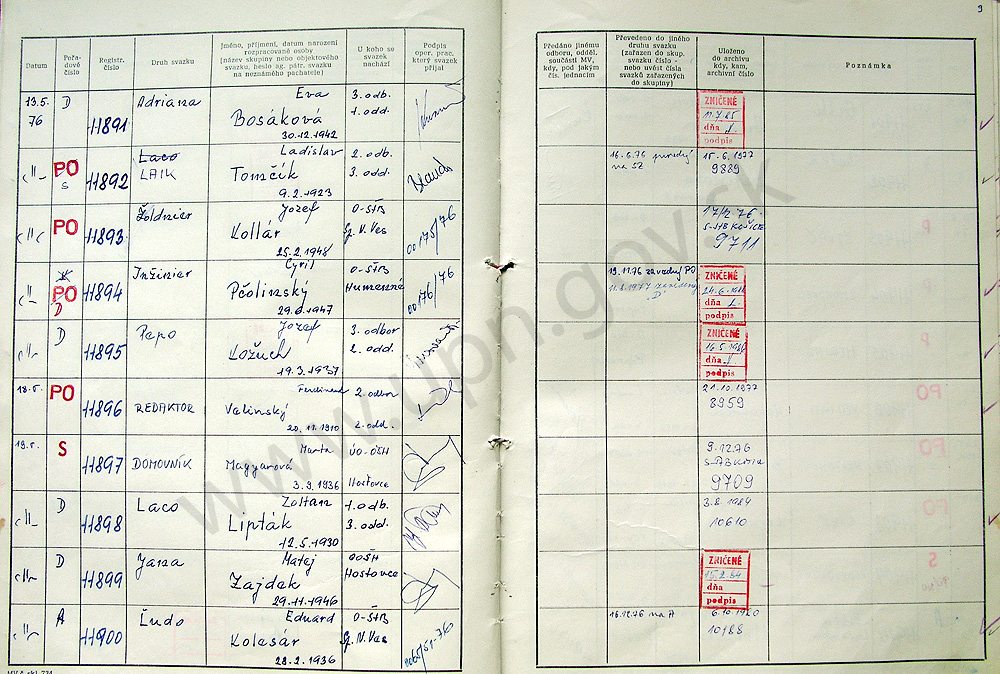 9
Datum
Pořadové číslo
Registr. číslo
Druh svazku
Jméno, příjmení, datum narození rozpracované osoby
(název skupiny nebo objektového svazku, heslo ag. pátr. svazku na neznámého pachatele)
U koho se svazek nachází
Podpis oper. prac. který svazek přijal
Předáno jinému odboru, odděl. součásti MV, kdy, pod jakým čís. jednacím
Převedeno do jiného druhu svazku (zařazen do skup. svazku číslo - nebo uvést čísla svazků zařazených do skupiny)
Uloženo do archivu kdy, kam, archivní číslo
Poznámka
13.5. 76
D
11891
Adriana
Eva
Bosáková
30.12.1942
3. odb.
1. odd.
ZNIČENÉ
dňa
podpis
-"-
PO
S
11892
Laco
LAIK
Ladislav
Tomčík
9.2.1923
2. odb.
3. odd.
15.6.1977
9889
-"-
PO
11893
Žoldnier
Jozef
Kollár
25.2.1948
O-ŠTB
Sp. N. Ves
00175/76
9711
-"-
PO
D
11894
Inžinier
Cyril
Pčolinský
29.6.1947
O-ŠTB
Humenné
00176/76
19.11.76 zavedený PO
ZNIČENÉ
dňa
podpis
-"-
D
11895
Pepo
Jozef
Kožuch
19.3.1937
3. odbor
2. odd.
ZNIČENÉ
16.5.1986
dňa
podpis
18.5.
PO
11896
REDAKTOR
Ferdinand
Valinský
20.11.1910
2. odbor
2. odd.
21.10.1977
8959
19.5.
S
11897
DOMOVNÍK
Marta
Magyarová
3.9.1936
ÚO-OŠH
Hosťovce
9.12.76
9709
-"-
D
11898
Laco
Zoltán
Lipták
12.5.1930
1. odb.
3. odd.
3.8.1984
10610
-"-
D
11899
Jana
Matej
Zajdak
29.11.1946
OOŠH
Hosťovce
ZNIČENÉ
15.2.84
dňa
podpis
-"-
A
11900
Ľudo
Eduard
Kolesár
28.2.1936
O-ŠTB
Sp. N. Ves
16.12.76 na A
6.10.1980
10188
www.upn.gov.sk